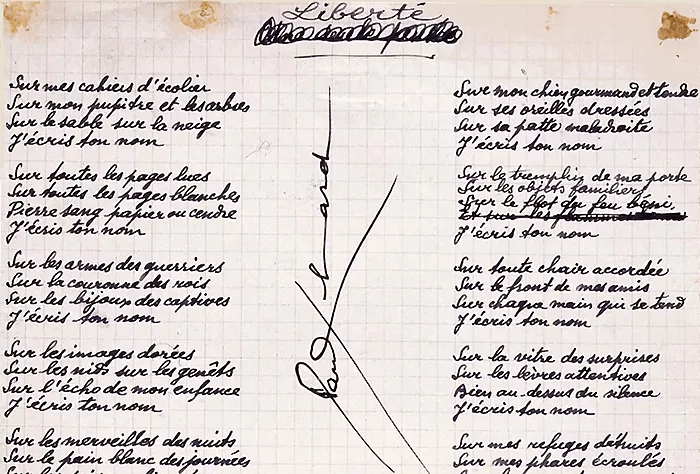 Liberté
Sur mes cahiers d'écolier
Sur mon pupitre et les arbres
Sur le sable sur la neige
J'écris ton nom
Sur toutes les pages lues
Sur toutes les pages blanches
Pierre sang papier ou cendre
J'écris ton nom
Sur les armes des guerriers
Sur la couronne des rois
Sur les bijoux des captives
J'écris ton nom
Sur les images dorées
Sur les nids sur les genêts
Sur l'écho de mon enfance
J'écris ton nom
Sur les merveilles des nuits
Sur le pain blanc des journées
Paul Eluard
Sur mon chien gourmand et tendre
Sur ses oreilles dressées
Sur sa patte maladroite
J'écris ton nom
Sur le tremplin de ma porte
Sur les objets familiers
Sur le flot du feu béni
Et sur les
J'écris ton nom
Sur toute chair accordée
Sur le front de mes amis
Sur chaque main qui se tend
J'écris ton nom
Sur la vitre des surprises
Sur les lèvres attentives
Bien au-dessus du silence
J'écris ton nom
Sur mes refuges détruits
Sur mes phares écroulés